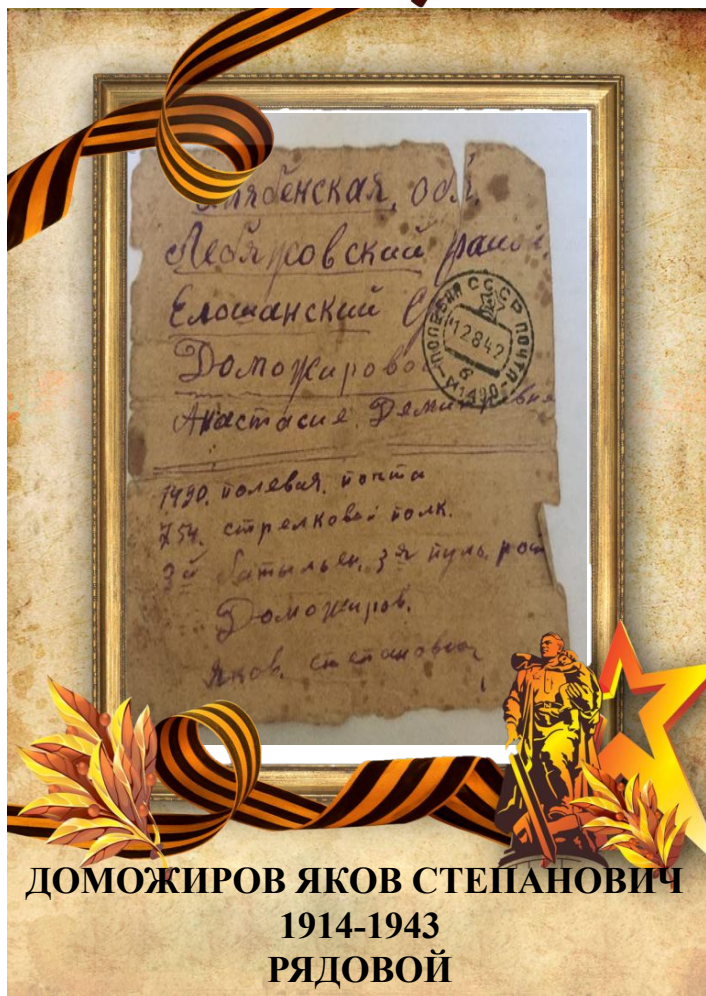 обл.
Лебяжовский район.
Елошанский С
Доможирово
Анастасие
ПОЛЕВАЯ СССР ПОЧТА
12 8 42
б
1490
1490. полевая. почта
754. стрелковой полк.
3й батыльен, 3я пуль. рот
Доможиров.
Яков. степанович
ДОМОЖИРОВ ЯКОВ СТЕПАНОВИЧ
1914-1943
РЯДОВОЙ